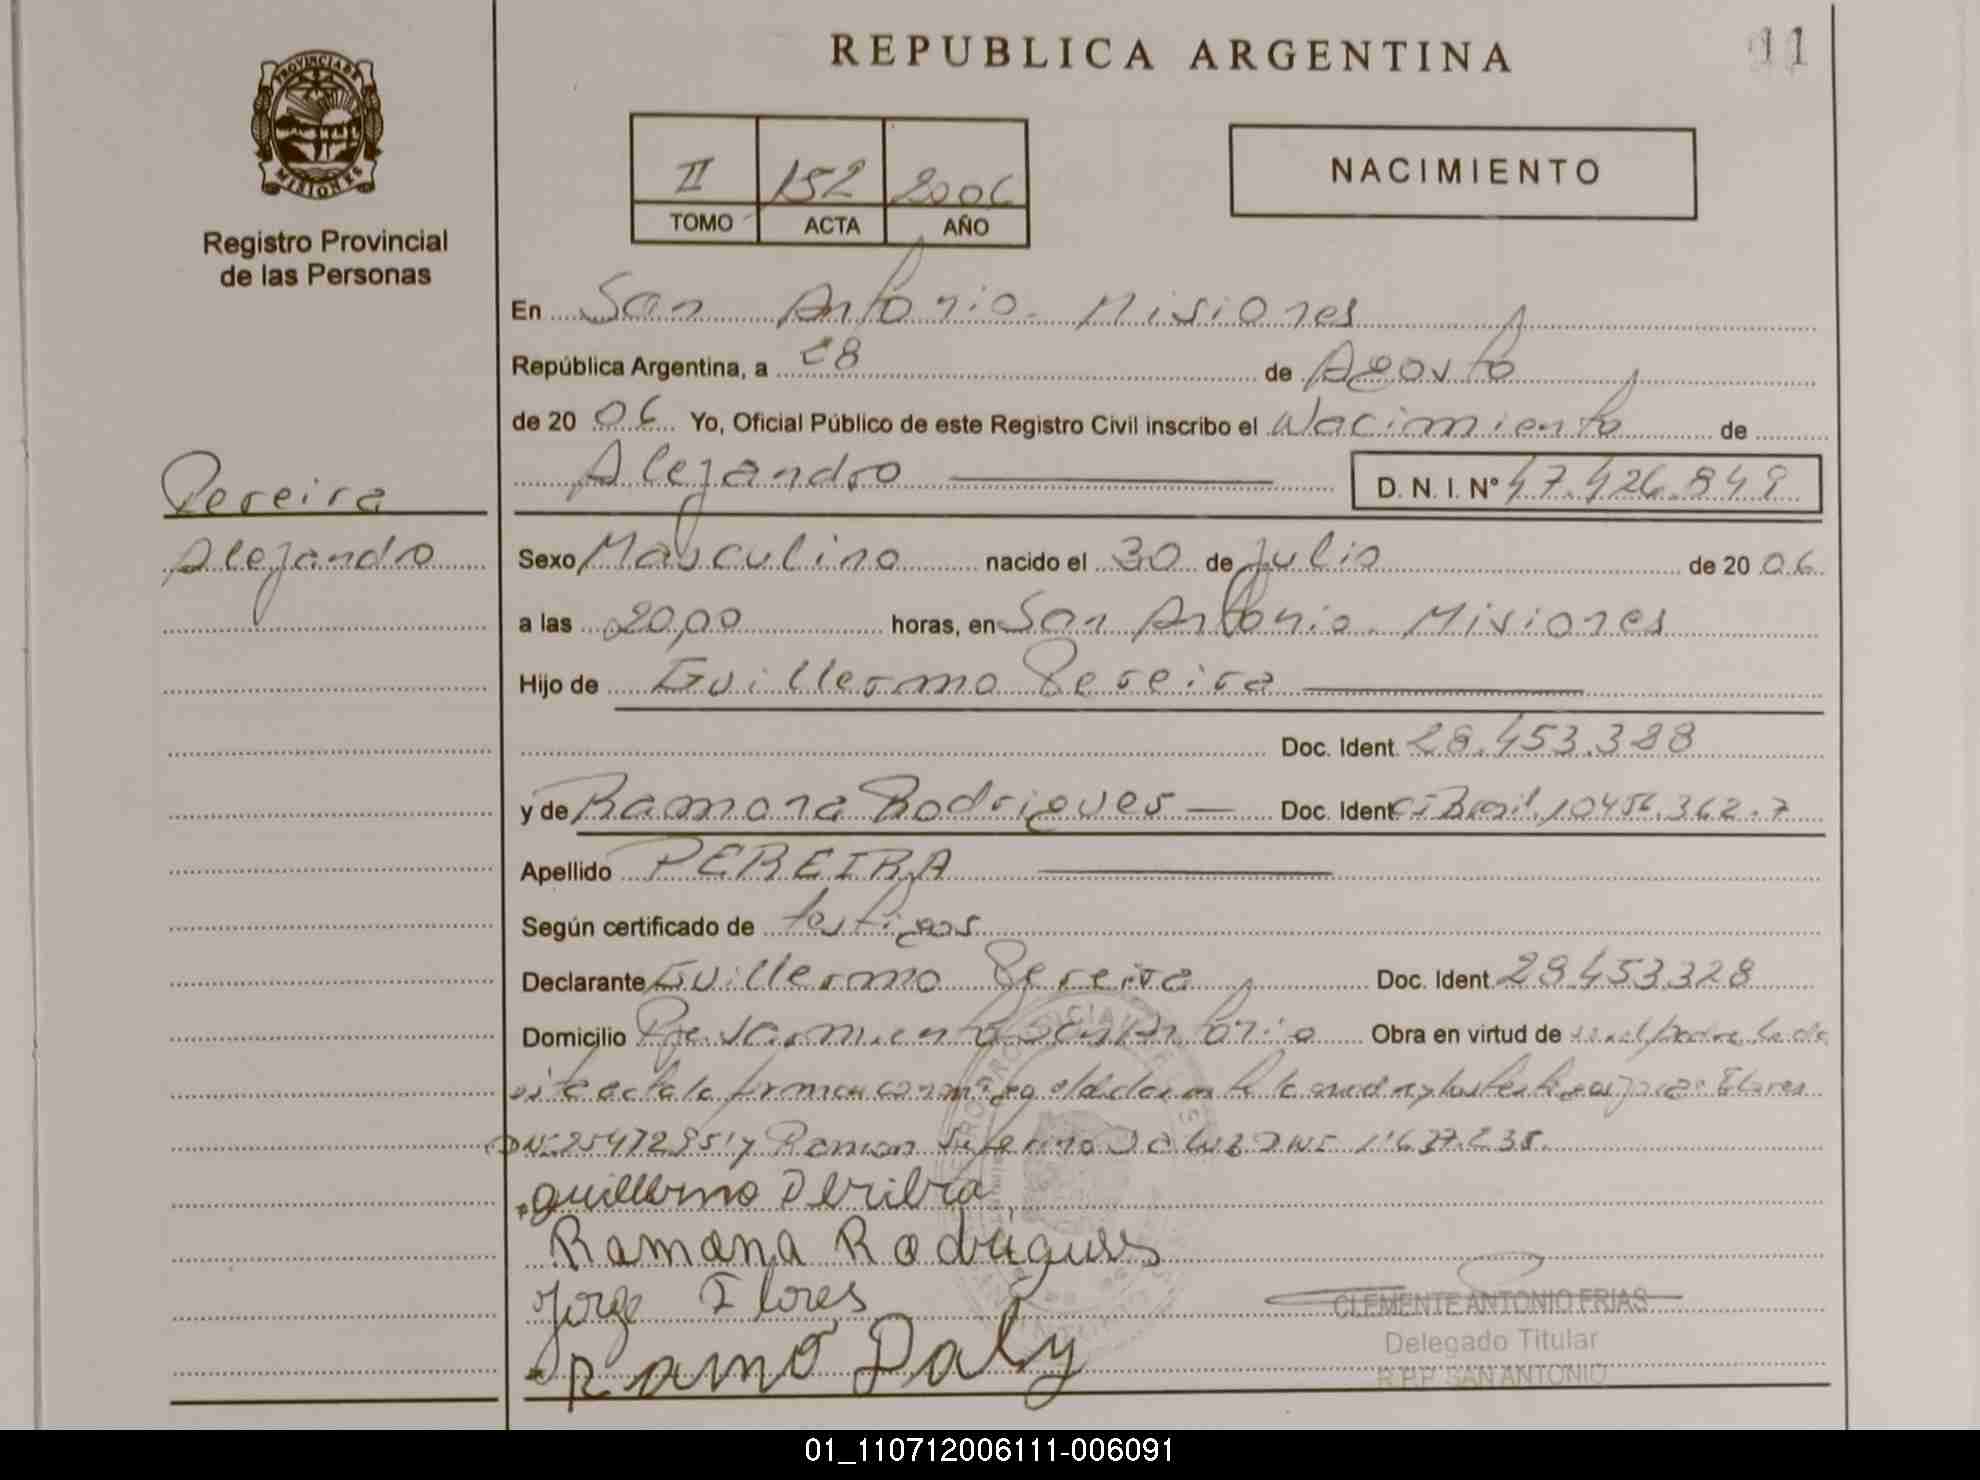 REPUBLICA ARGENTINA
11
PROVINCIA DE
MISIONES
Registro Provincial
de las Personas
II 152 2006
TOMO ACTA AÑO
NACIMIENTO
En San Antonio - Misiones
República Argentina, a 28 de Agosto
de 20 06 Yo, Oficial Público de este Registro Civil inscribo el Nacimiento de
Alejandro D. N. I. Nº 47.426.849
Pereira
Alejandro
Sexo Masculino nacido el 30 de Julio de 20 06
a las 20,00 horas, en San Antonio - Misiones
Hijo de Guillermo Pereira
Doc. Ident. 28.453.328
y de Ramona Rodrigues Doc. Ident. CI Brasil 10456.362.7
Apellido PEREIRA
Según certificado de testigos
Declarante Guillermo Pereira Doc. Ident. 28.453.328
Domicilio Pje. Sarmiento San Antonio Obra en virtud de ser el padre leida
este acta la firman conmigo el declarante la madre y los testigos Jorge Flores
DNI 25472951 y Ramon Da Luz DNI
guillermo Pereira
Ramona Rodrigues
Jorge Flores
Ramo Daly
CLEMENTE ANTONIO FRIAS
Delegado Titular
R.P.P. SAN ANTONIO
01_110712006111-006091